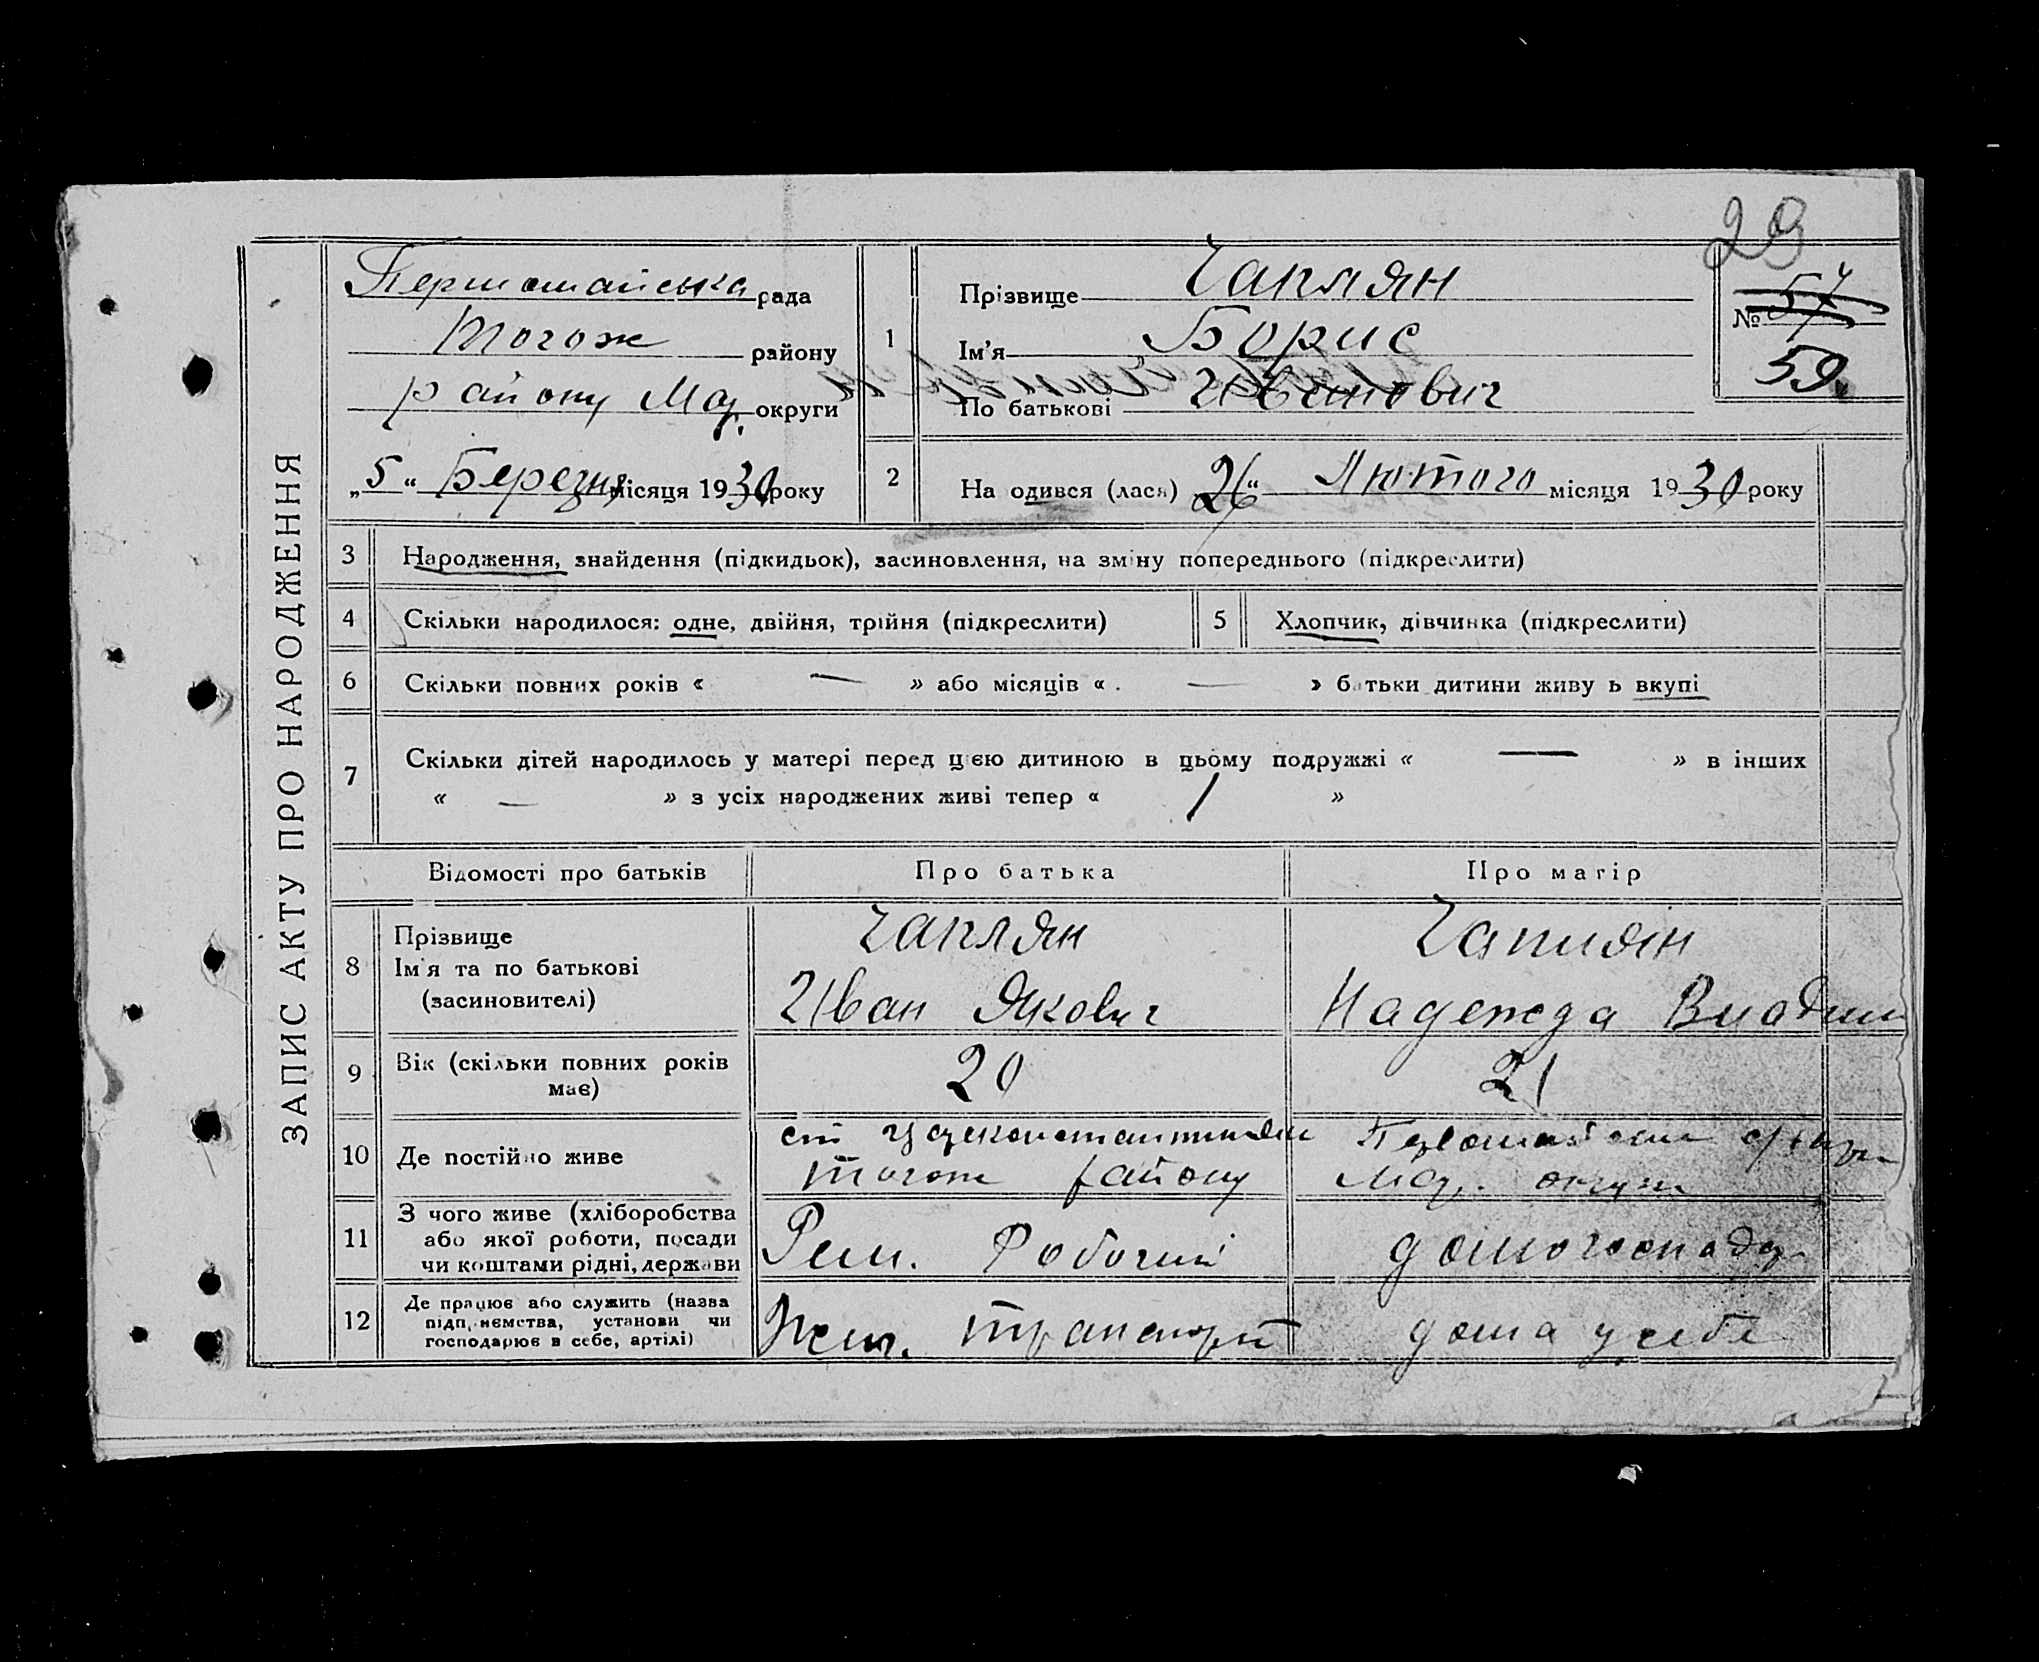 29
ЗАПИС АКТУ ПРО НАРОДЖЕННЯ
Першомайська рада
Тогож району
району Мар. округи
„5“ Березня місяця 1930 року
1
Прізвище Чаплян
Ім'я Борис
По батькові Иванович
№ 57
59
2
На одився (лася) 26 “ Лютого місяця 1930 року
3 Народження, знайдення (підкидьок), засиновлення, на зміну попереднього (підкреслити)
4 Скільки народилося: одне, двійня, трійня (підкреслити)
5 Хлопчик, дівчинка (підкреслити)
6 Скільки повних років « — » або місяців « . — » батьки дитини живу ь вкупі
7 Скільки дітей народилось у матері перед цією дитиною в цьому подружжі « — » в інших
« — » з усіх народжених живі тепер « 1 »
Відомості про батьків Про батька Про матір
8 Прізвище
Ім'я та по батькові
(засиновителі)
Чаплян
Иван Якович
Чаплян
Надежда Владим
9 Вік (скільки повних років
має)
20
21
10 Де постійно живе
ст
тогож району
Мар. округи
11 З чого живе (хліборобства
або якої роботи, посади
чи коштами рідні, держави
Рем. Робочий
домогоспадар
12 Де працює або служить (назва
підприємства, установи чи
господарює в себе, артілі)
Жел. транспорт
дома у себе